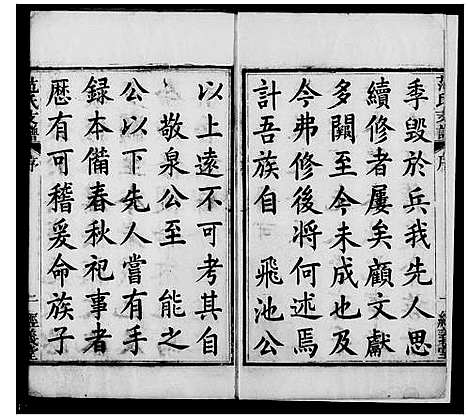 季毀於兵我先人思
續修者屢矣顧文獻
多闕至今未成也及
今弗修後將何述焉
計吾族自 飛池公
以上遠不可考其自
敬泉公至 能之
公以下先人嘗有手
錄本備春秋祀事者
歷有可稽爰命族子
范氏支譜 序 二 經義堂